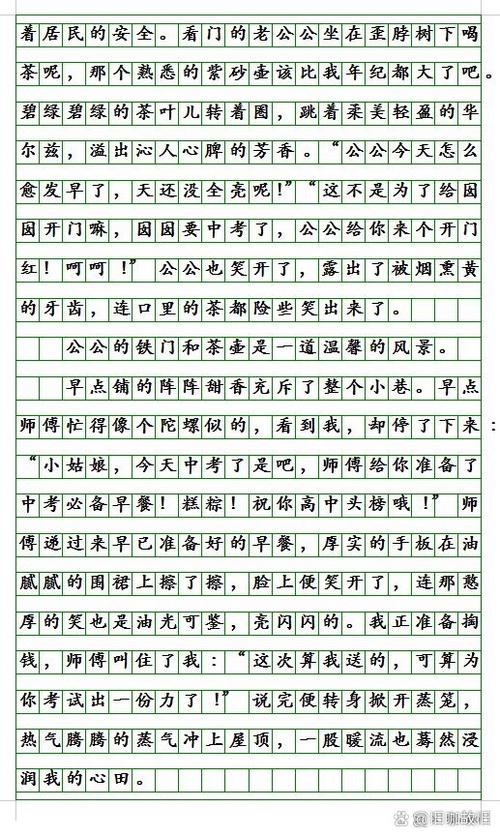 着居民的安全。看门的老公公坐在歪脖树下喝
茶呢，那个熟悉的紫砂壶该比我年纪都大了吧。
碧绿碧绿的茶叶儿转着圈，跳着柔美轻盈的华
尔兹，溢出沁人心脾的芳香。“公公今天怎么
愈发早了，天还没全亮呢！”“这不是为了给囡
囡开门嘛，囡囡要中考了，公公给你来个开门
红！呵呵！”公公也笑开了，露出了被烟熏黄
的牙齿，连口里的茶都险些笑出来了。
公公的铁门和茶壶是一道温馨的风景。
早点铺的阵阵甜香充斥了整个小巷。早点
师傅忙得像个陀螺似的，看到我，却停了下来：
“小姑娘，今天中考了是吧，师傅给你准备了
中考必备早餐！糕粽！祝你高中头榜哦！”师
傅递过来早已准备好的早餐，厚实的手板在油
腻腻的围裙上擦了擦，脸上便笑开了，连那憨
厚的笑也是油光可鉴，亮闪闪的。我正准备掏
钱，师傅叫住了我：“这次算我送的，可算为
你考试出一份力了！”说完便转身掀开蒸笼，
热气腾腾的蒸气冲上屋顶，一股暖流也蓦然浸
润我的心田。